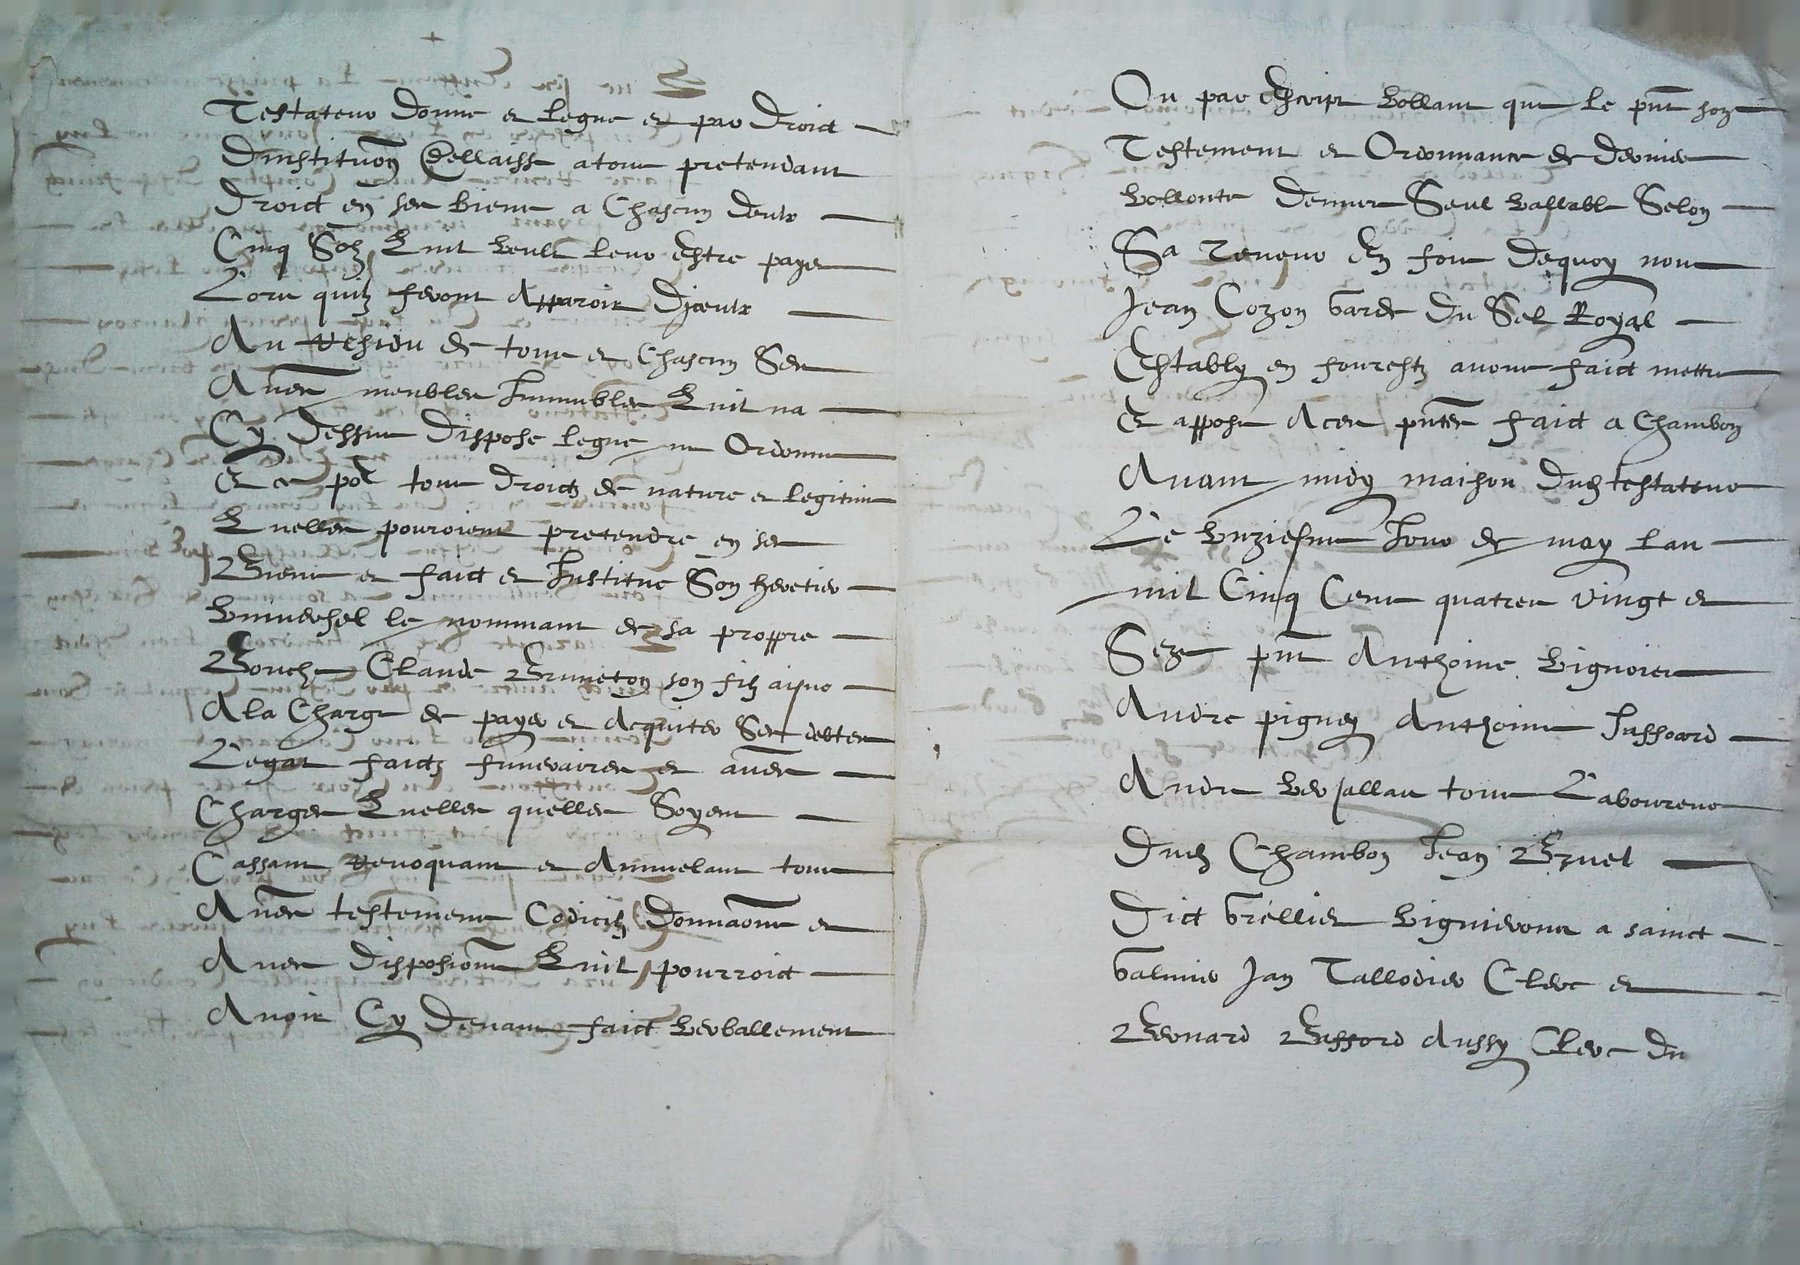 Testateur donne et legue et par droict
Dinstitution dellaisse a tous pretendant
Droict en ses biens a Chascun deulx
Cinq Solz Luil veult leur Estre payes
Lors quilz feront Apparoir Diceulx
Au Reside de tous et Chascun Ses
Aultres meubles Immubles Quil na
Cy dessus dispose legue ny Ordonne
Et ce por tous droictz de nature et legitime
Quelles pouroient pretendre en ses
Biens et faict et Institue Son heretier
Universel le nommant de sa proppre
Bouche Claude Bruneton son filz aisne
A la Charge de payer et Acquiter Ses debtes
Legat faictz funeraires et aultres
Charges Quelles quelles Soyent
Cassant revoquant et Annuelant tous
Aultres testements Codicilz Donnaons et
Aultres disposions Quil pourroict
Avoir Cy devant faict verballement
Ou par Escript vollant que le pnt son
Testement et Ordonnance de dernier
vollonte demeure Seul vallable Selon
Sa teneur En foy dequoy nous
Jean Cozon Garde du Sel Royal
Estably en fourestz avons faict mettre
Et apposer A ces pntes faict a Chambon
Avant midy maison dud testateur
Le unziesme Jour de may lan
mil Cinq Cens quatre vingt et
Seze pnt Anthoine Vignoies
Andre pigney Anthoine Jussoard
Andre Verjallat tous Laboureurs
Dud Chambon Jean Bruel
Dict Grellier Vignerons a sainct
Galmier Jan Tallodier Clerc et
Beonard Bessord Aussy Clerc du